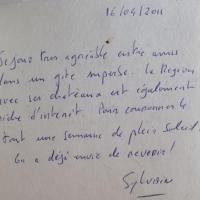 16/04/2011
Séjour très agréable entre amis
dans un gîte superbe. La Région
avec ses châteaux est également
riche d'intérêt. Pour couronner le
tout une semaine de plein Soleil!
On a déjà envie de revenir!
Sylvain